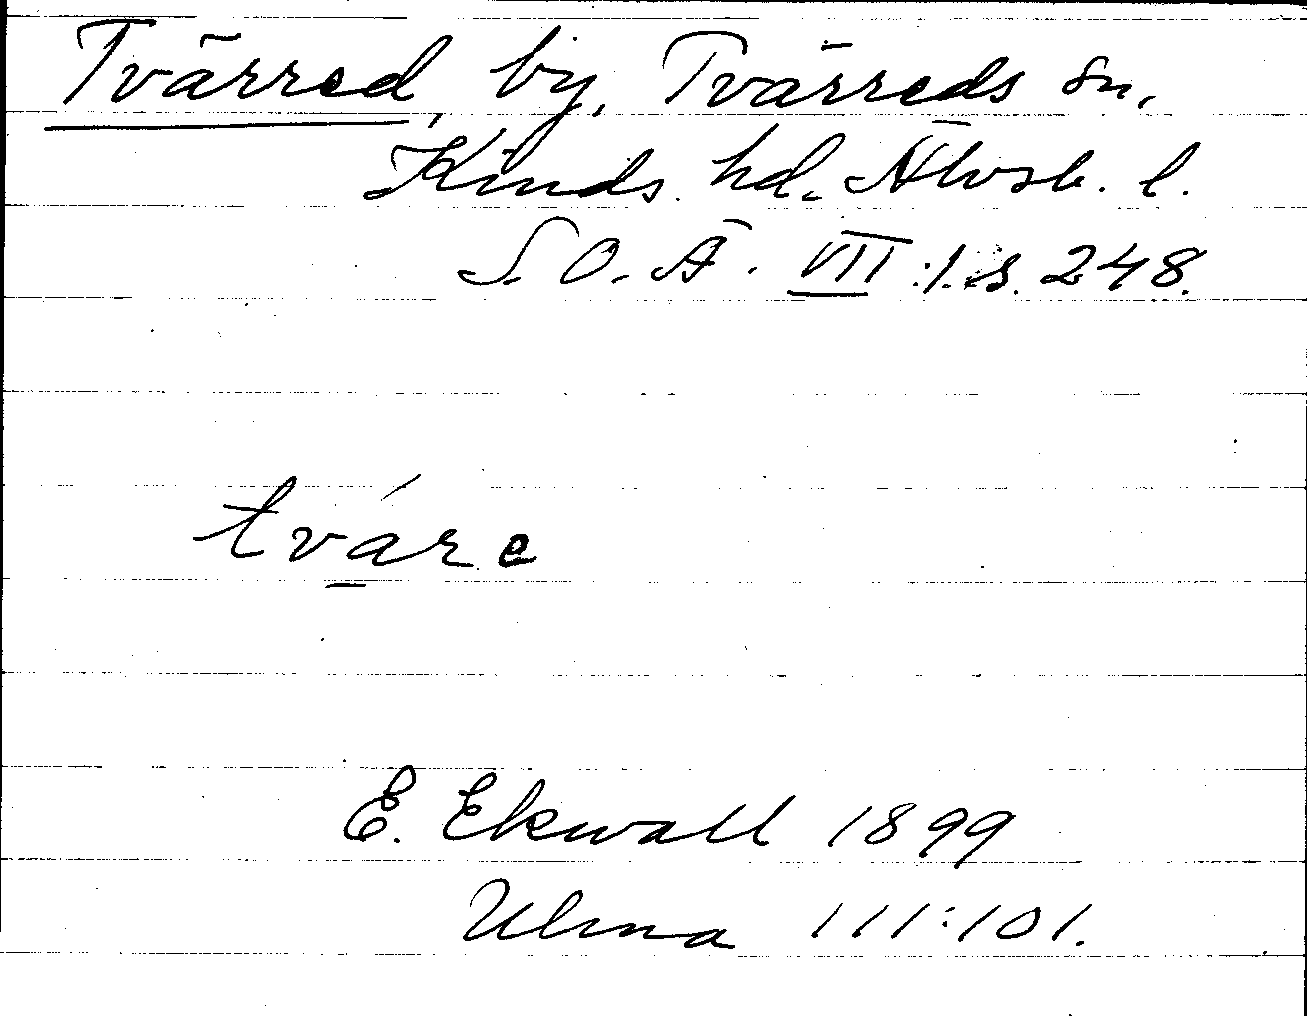 Tvärred, by, Tvärreds sn,
Kinds hd. Älvsb. l.
S. O. Ä. VII:1 s. 248.
tvá̱re
E. Ekwall 1899
Ulma 111:101.